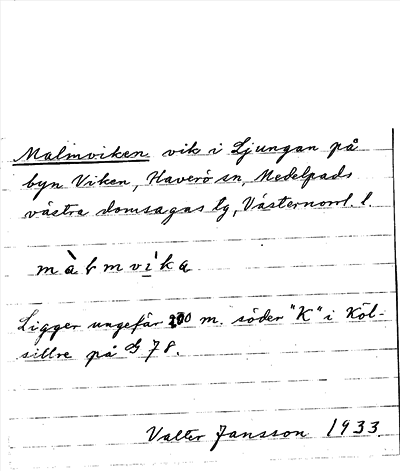 Malmviken vik i Ljungan på
byn Viken, Haverö sn, Medelpads
västra domsagas lg, Västernorrl. l.
màɫmvìka
Ligger ungefär 200 m. söder "K" i Köl-
sillre på G 78.
Valter Jansson 1933.